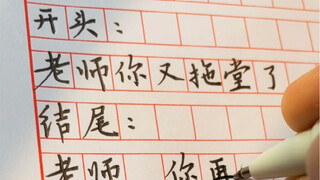 开头：
老师你又拖堂了
结尾：
老师 你再